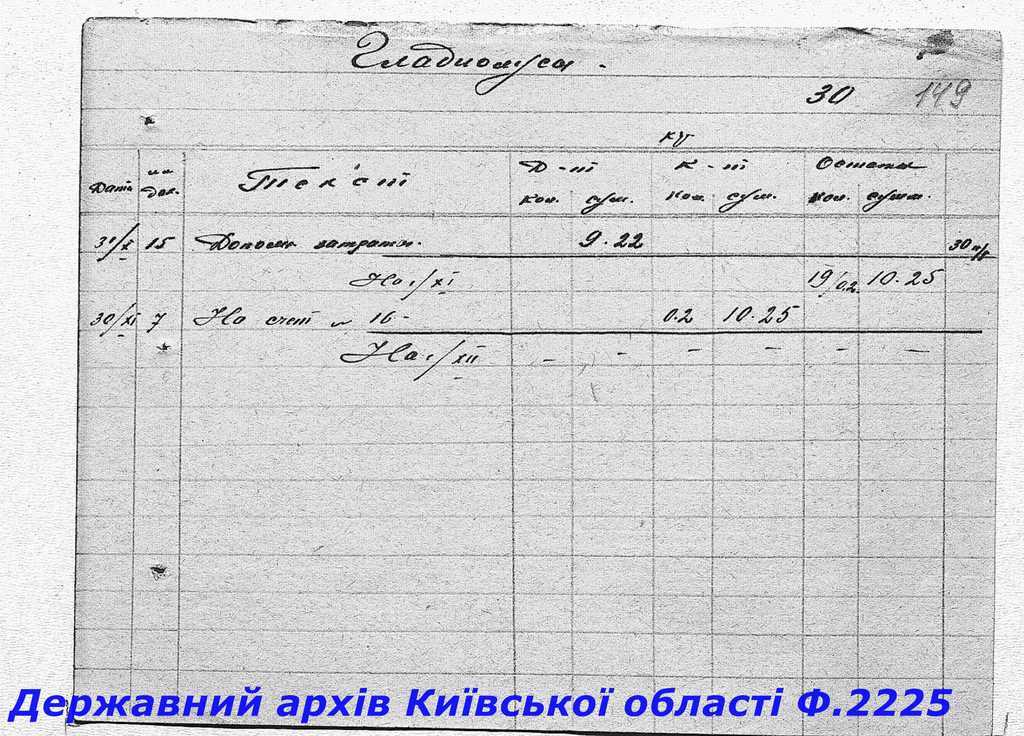 Гладиолуса.
30 149
ку
Дата № док. Текст Д-т К-т Остаток
кол. сум. кол. сум. кол. сумм.
31/X 15 Дополн. затраты. 9.22 30
На 1/XI 19/0.2 10.25
30/XI 7 На счет 16- 0.2 10.25
На 1/XII - - - - - -
Державний архів Київської області Ф.2225